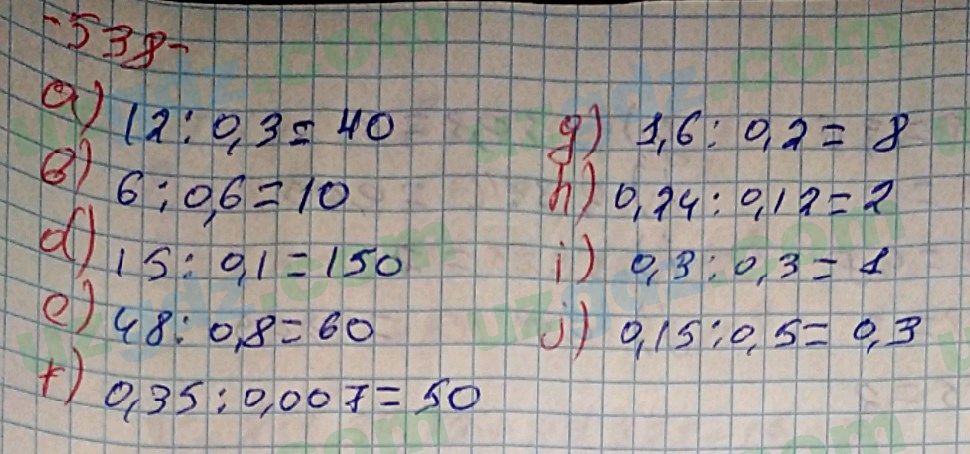 -538-
a) 12 : 0,3 = 40
b) 6 : 0,6 = 10
d) 15 : 0,1 = 150
e) 48 : 0,8 = 60
f) 0,35 : 0,007 = 50
g) 1,6 : 0,2 = 8
h) 0,24 : 0,12 = 2
i) 0,3 : 0,3 = 1
j) 0,15 : 0,5 = 0,3
uzgdz.com